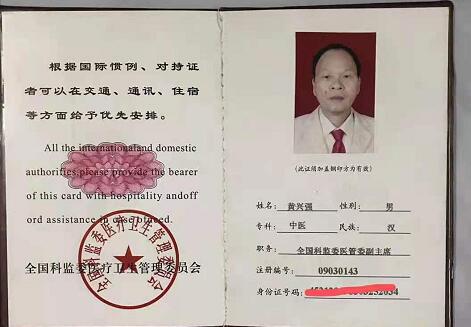 根据国际惯例、对持证
者可以在交通、通讯、住宿
等方面给予优先安排。
All the internationaland domestic
authorifies,please provide the bearer
of this card with hospitality andoff
ord assistance in case placed.
全国科监委医疗卫生管理委员会
全国科监委医疗卫生管理委员会
(此证须加盖钢印方为有效)
姓名: 黄兴强 性别: 男
专科: 中医 民族: 汉
职务: 全国科监委医管委副主席
注册编号: 09030143
身份证号码: